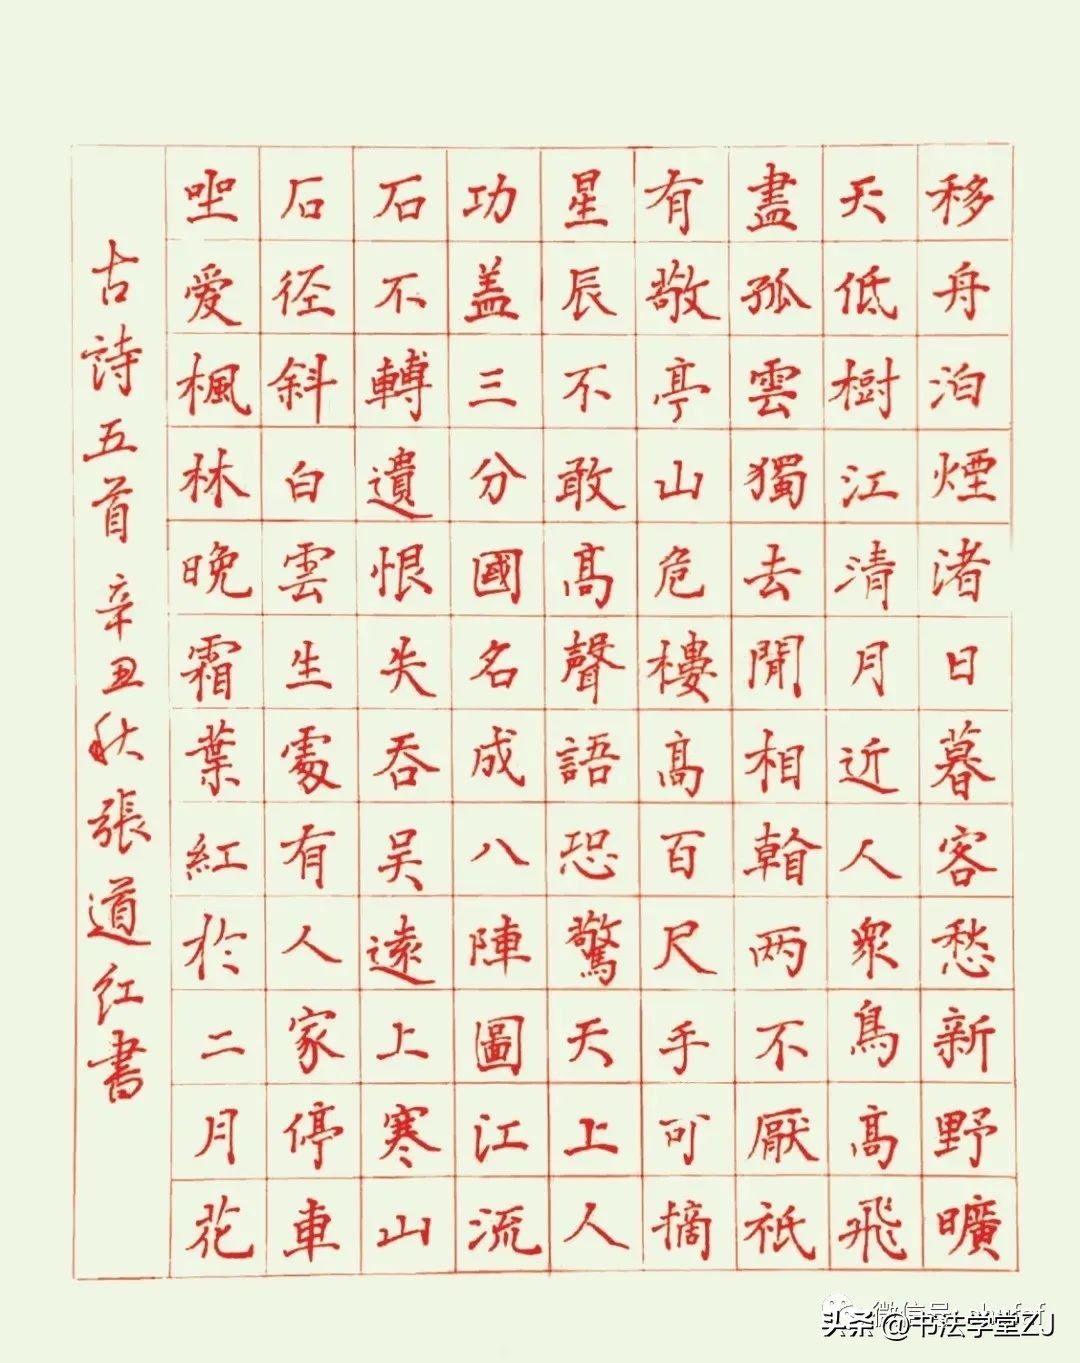 移舟泊煙渚日暮客愁新野曠
天低樹江清月近人衆鳥高飛
盡孤雲獨去閒相看两不厭祇
有敬亭山危樓高百尺手可摘
星辰不敢高聲語恐驚天上人
功盖三分國名成八陣圖江流
石不轉遺恨失吞吴遠上寒山
石径斜白雲生處有人家停車
坐愛楓林晚霜葉紅於二月花
古詩五首辛丑秋張道红書
微信号
头条 @书法学堂ZJ